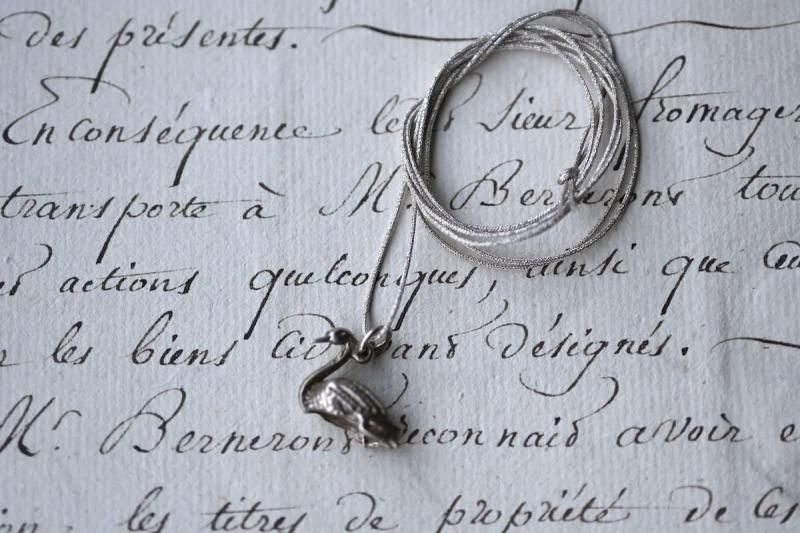 des présentes.
En conséquence le sieur fromager
transporte à Mr. Berneron tou
actions quelconques, ainsi que
les biens désignés.
Mr. Berneron reconnaid avoir
les titres de propriété de ces